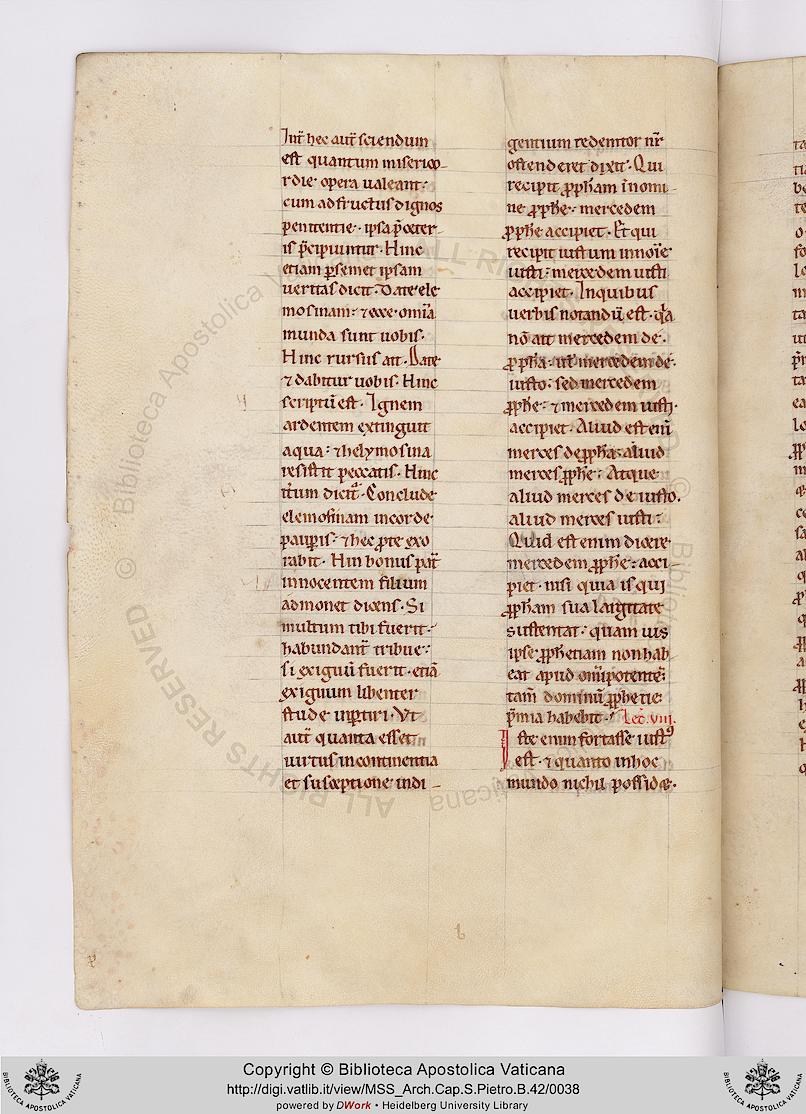 Int̄ hec aut̄ sciendum
est quantum misericor
rdie opera ualeant·
cum ad fructus dignos
penitentie · ipsa p̄ceter
is p̄cipiuntur · Hinc
etiam p̱semet ipsam
ueritas dicit · Date ele
mosinam · ⁊ ecce om̄ia
munda sunt uobis·
Hinc rursus ait · Date
⁊ dabitur uobis · Hinc
scriptū est · Ignem
ardentem extinguit
aqua · ⁊ helymosina
resistit peccatis · Hinc
it̄um dicit̄ · Conclude
elemosinam in corde
paup̱is · ⁊ hec p̱ te exo
rabit · Hin bonus pat̄
innocentem filium
admonet dicens · Si
multum tibi fuerit·
habundant̄ tribue·
si exiguū fuerit · etiā
exiguum libenter
stude inp̱tiri · Vt
aut̄ quanta esset
uirtus in continentia
et susceptione indi
gentium redemtor nr̄
ostenderet dixit · Qui
recipit ꝓpham ī nomi
ne ꝓphe · mercedem
ꝓphe accipiet · Et qui
recipit iustum in noīe
iusti · mercedem iusti
accipiet · In quibus
uerbis notandū est · q̄a
nō ait mercedem de·
ꝓpha · ut̄ mercedem de·
iusto · sed mercedem
ꝓphe · ⁊ mercedem iusti·
accipiet · Aliud est eni̅
merces de ꝓpha · aliud
merces ꝓphe · Atque
aliud merces de iusto.
aliud merces iusti·
Quid est enim dicere
mercedem ꝓphe · acci
piet · nisi quia is qui
ꝓpham sua largitate
sustentat · quam uis
ipse ꝓphetiam non hab
eat apud om̄ipotentē·
tam̄ dominū ꝓphetie
p̄mia habebit · Lec̄. viii.
Iste enim fortasse iustꝰ
est · ⁊ quanto in hoc
mundo nichil possidet·
Copyright © Biblioteca Apostolica Vaticana
http://digi.vatlib.it/view/MSS_Arch.Cap.S.Pietro.B.42/0038
powered by DWork • Heidelberg University Library